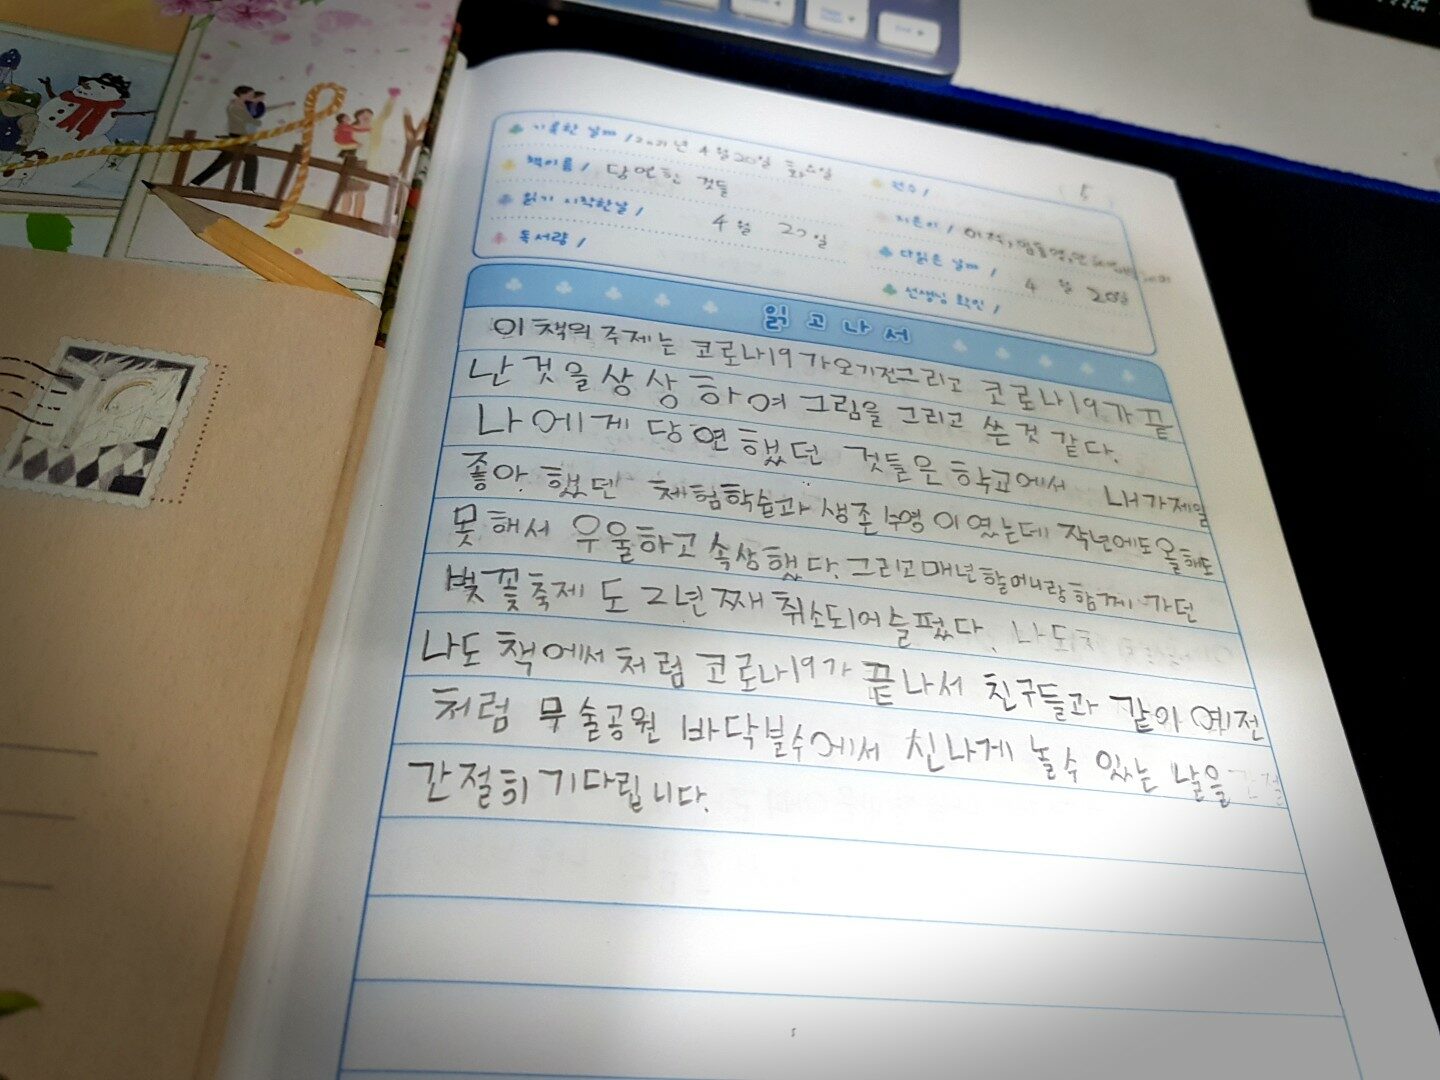 기록한 날짜 / 2021년 4월 20일 화요일
권수 / 5
책이름 / 당연한 것들
지은이 / 이적,
읽기 시작한날 / 4월 20일
다읽은 날짜 / 4월 20일
독서량 /
선생님 확인 /
읽고나서
이 책의 주제는 코로나19가 오기전그리고 코로나19가 끝
난 것을 상상하여 그림을 그리고 쓴 것 같다.
나에게 당연했던 것들은 학교에서 내가제일
좋아했던 체험학습과 생존수영 이였는데 작년에도올해도
못해서 우울하고 속상했다. 그리고매년할머니랑함께 가던
벚꽃축제 도 2년째 취소되어슬펐다.
나도 책에서 처럼 코로나19가 끝나서 친구들과 같이 예전
처럼 무술공원 바닥분수에서 신나게 놀수 있는 날을
간절히 기다립니다.
5